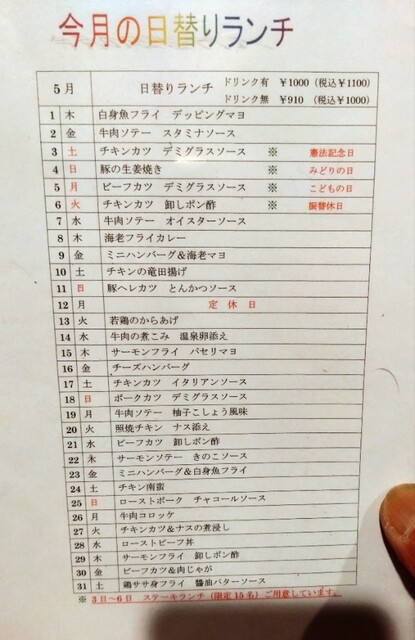 今月の日替りランチ
5月 日替りランチ ドリンク有 ￥1000（税込￥1100）
ドリンク無 ￥910 （税込￥1000）
1 木 白身魚フライ デッピングマヨ
2 金 牛肉ソテー スタミナソース
3 土 チキンカツ デミグラスソース ※ 憲法記念日
4 日 豚の生姜焼き ※ みどりの日
5 月 ビーフカツ デミグラスソース ※ こどもの日
6 火 チキンカツ 卸しポン酢 ※ 振替休日
7 水 牛肉ソテー オイスターソース
8 木 海老フライカレー
9 金 ミニハンバーグ&海老マヨ
10 土 チキンの竜田揚げ
11 日 豚ヘレカツ とんかつソース
12 月 定休日
13 火 若鶏のからあげ
14 水 牛肉の煮こみ 温泉卵添え
15 木 サーモンフライ パセリマヨ
16 金 チーズハンバーグ
17 土 チキンカツ イタリアンソース
18 日 ポークカツ デミグラスソース
19 月 牛肉ソテー 柚子こしょう風味
20 火 照焼チキン ナス添え
21 水 ビーフカツ 卸しポン酢
22 木 サーモンソテー きのこソース
23 金 ミニハンバーグ&白身魚フライ
24 土 チキン南蛮
25 日 ローストポーク チャコールソース
26 月 牛肉コロッケ
27 火 チキンカツ&ナスの煮浸し
28 水 ローストビーフ丼
29 木 サーモンフライ 卸しポン酢
30 金 ビーフカツ&肉じゃが
31 土 鶏ササ身フライ 醤油バターソース
※ 3日～6日 ステーキランチ（限定15名）ご用意しています。